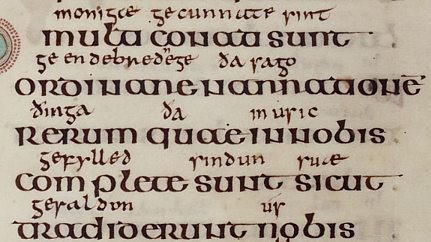 monigæ gecunnate sint
multi conati sunt
ge endebrednege ða sago
ordinare narrationē
ðinga ða in usic
rerum quae in nobis
gefylled sindun suæ
completæ sunt sicut
gesaldon us
tradiderunt nobis